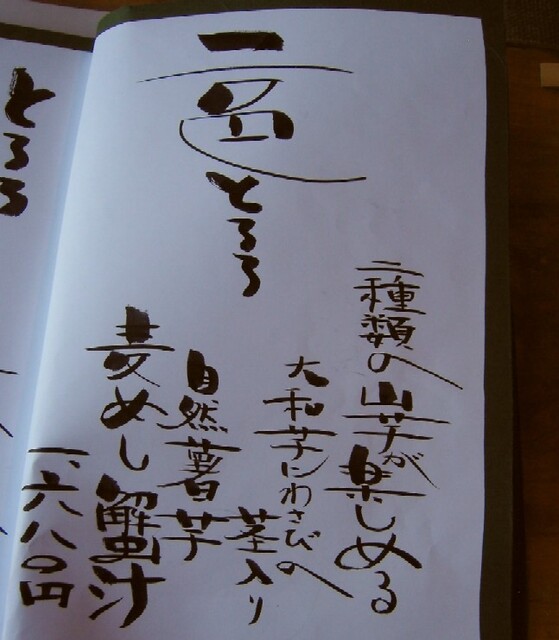 二色とろろ
二種類の山芋が楽しめる
大和芋にわさびの
茎入り
自然薯芋
麦めし 蟹汁
一、六八〇円
とろろ